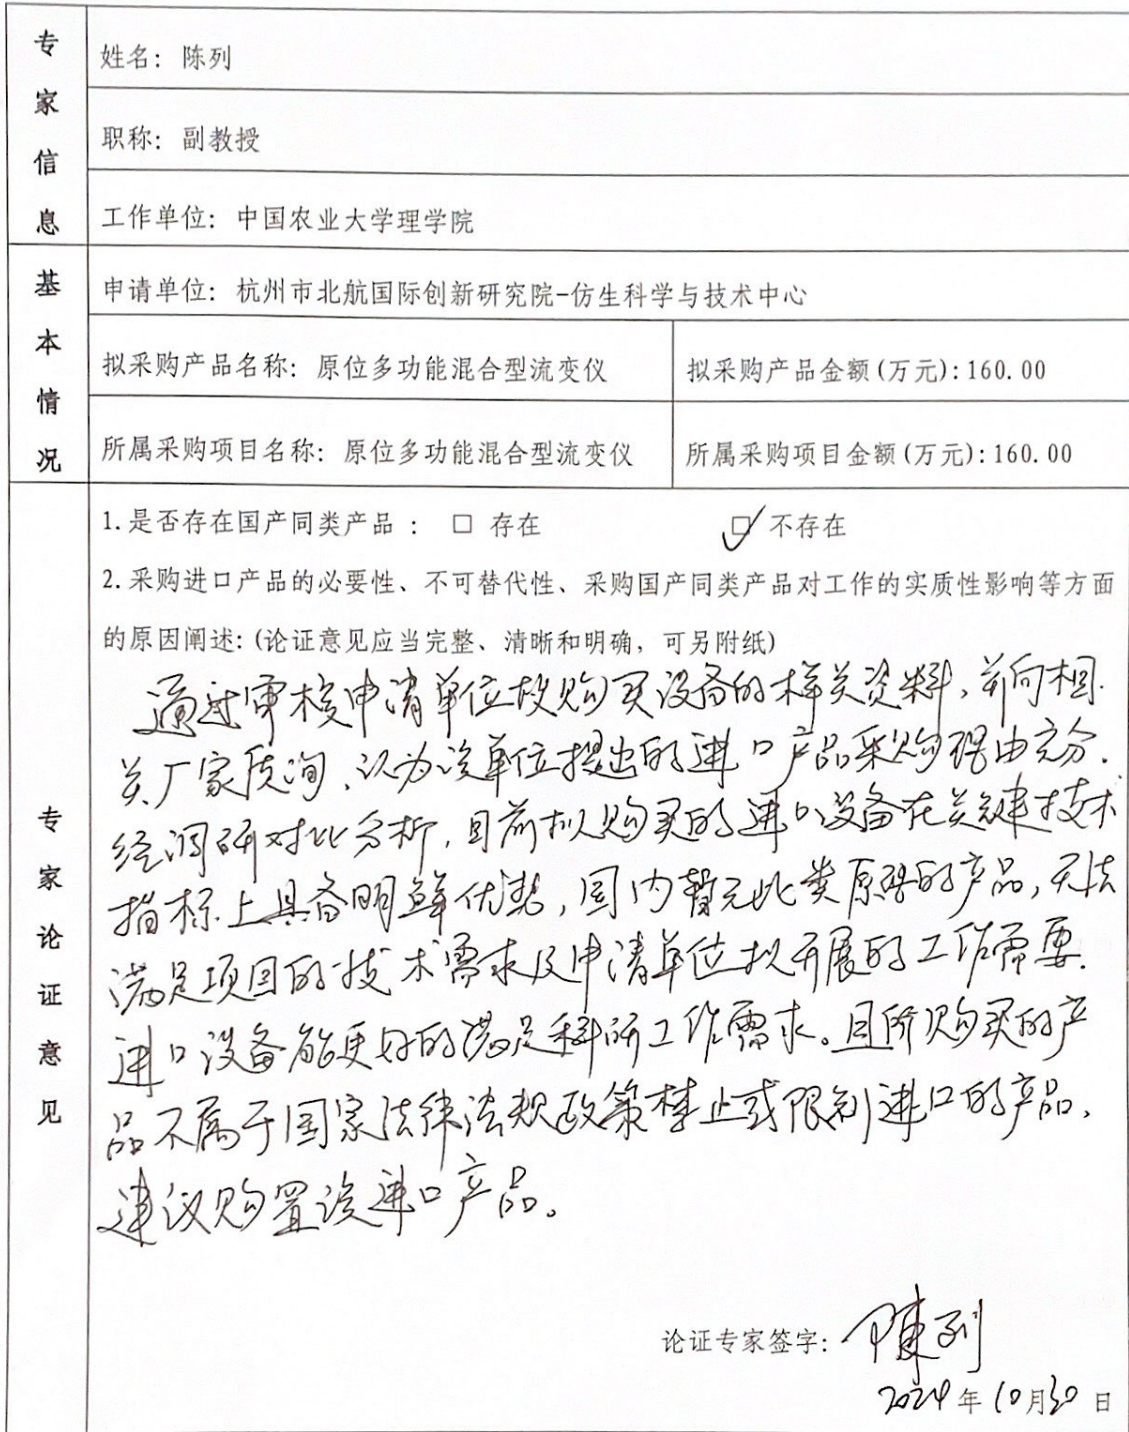 专家信息
姓名: 陈列
职称: 副教授
工作单位: 中国农业大学理学院
基本情况
申请单位: 杭州市北航国际创新研究院-仿生科学与技术中心
拟采购产品名称: 原位多功能混合型流变仪
拟采购产品金额(万元):160.00
所属采购项目名称: 原位多功能混合型流变仪
所属采购项目金额(万元):160.00
专家论证意见
1.是否存在国产同类产品 : □ 存在 ☑ 不存在
2.采购进口产品的必要性、不可替代性、采购国产同类产品对工作的实质性影响等方面
的原因阐述:(论证意见应当完整、清晰和明确, 可另附纸)
通过审核申请单位拟购买设备的相关资料,并向相
关厂家质询,认为该单位提出的进口产品采购理由充分.
经调研对比分析,目前拟购买的进口设备在关键技术
指标上具备明显优势,国内暂无此类原理的产品,无法
满足项目的技术需求及申请单位拟开展的工作需要.
进口设备能更好的满足科研工作需求。且所购买的产
品不属于国家法律法规政策禁止或限制进口的产品,
建议购置该进口产品。
论证专家签字: 陳列
2024年10月30日